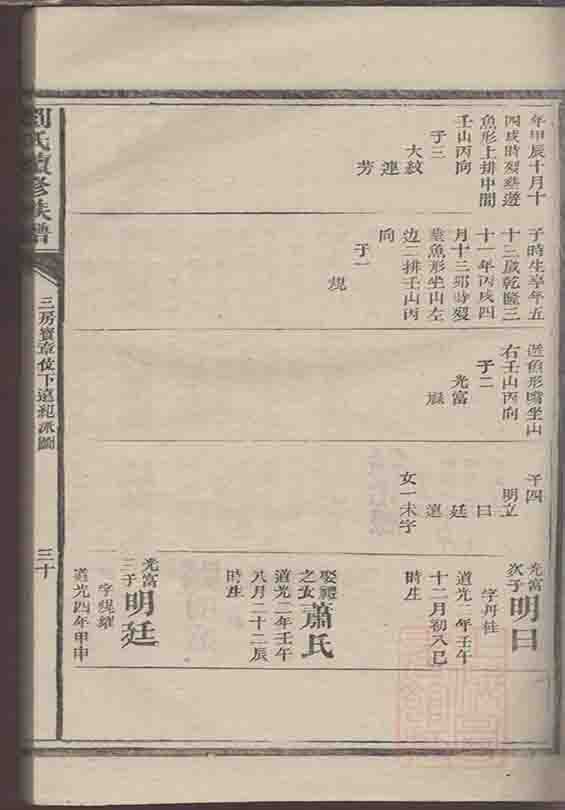 年甲辰十月十
四戌時歿葬遊
魚形上排中間
壬山丙向
子三
大紋
連
芳
子時生享年五
十三歲乾隆三
十一年丙戌四
月十三卯時歿
葉魚形坐山左
边二排壬山丙
向
子一
遊魚形嘴坐山
右壬山丙向
子二
光富
子四
明立
曰
廷
選
女一未字
光富
次子明曰
字丹桂
道光二年壬午
十二月初八巳
時生
娶禮
之女蕭氏
道光二年壬午
八月二十二辰
時生
光富
三子明廷
字緄耀
道光四年甲申
劉氏續修族譜
三房寶章位下遠紀派圖
三十